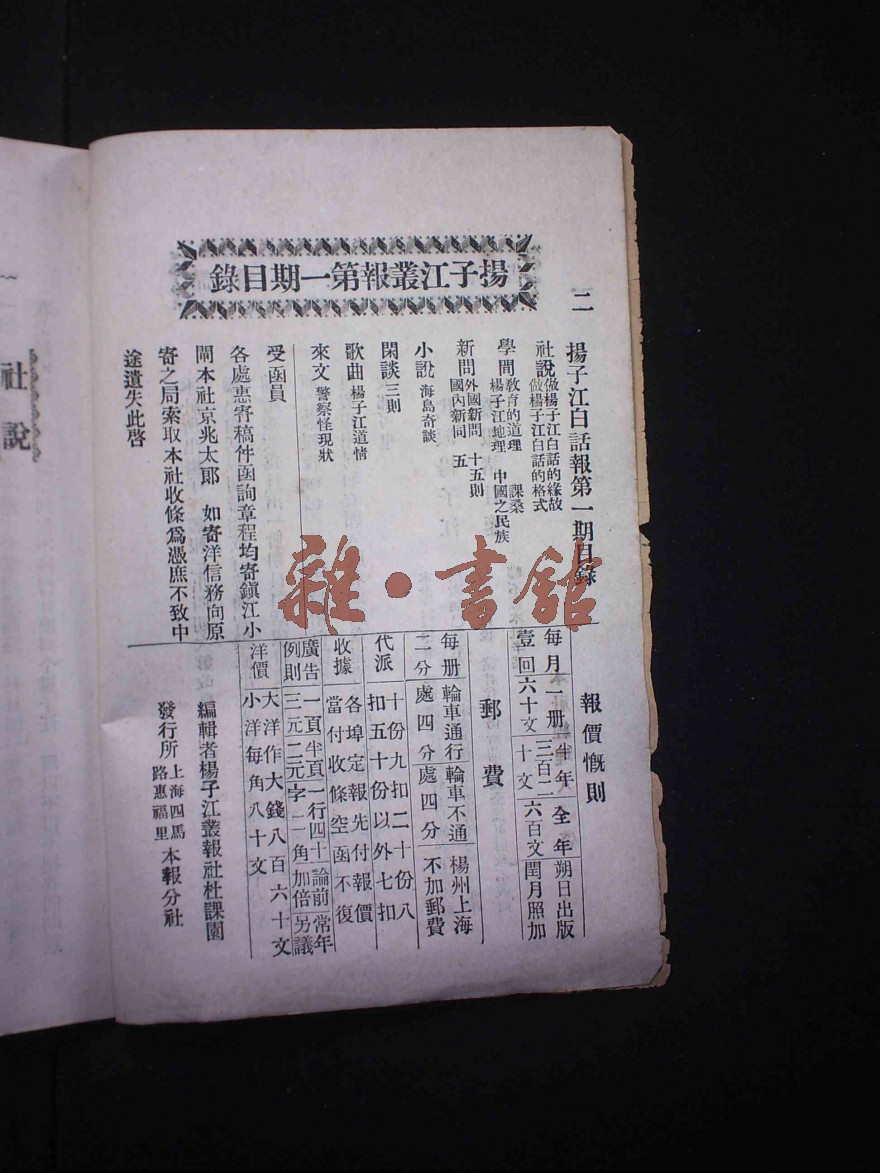 揚子江叢報第一期目錄
二
揚子江白話報第一期目錄
社說 做楊子江白話的緣故
做楊子江白話的格式
學問 敎育的道理 課桑
楊子江地理 中國之民族
新聞 外國新問 十五則
國內新同 五
小訛 海島奇談
閑談 三則
歌曲 楊子江道情
來文 警察怪現狀
受函員
各處惠寄稿件函詢章程均寄鎭江小
閘本社京兆太郞 如寄洋信務向原
寄之局索取本社收條爲憑庶不致中
途遺失此啓
報價慨則
每月一册 半年 全年 朔日出版
壹回六十文 三百二十文 六百文 閏月照加
郵費
每册 輪車通行 輪車不通 楊州上海
二分 處四分 處四分 不加郵費
代派 十份九扣二十份八
扣五十份以外七扣
收據 各埠定報先付報價
當付收條空函不復
廣告 一頁 半頁 一行四十 論前 常年
例則 三元 二元 字二角 加倍 另議
洋價 大洋作大錢八百六十文
小洋每角八十文
編輯者楊子江叢報社杜課園
發行所 上海四馬路惠福里 本報分社
社說
雜·書館